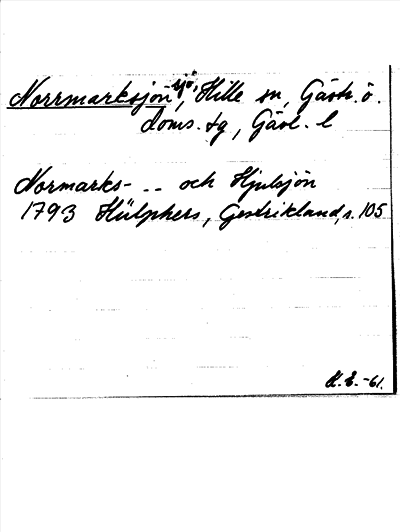 Norrmarksjön sjö, Hille sn, Gästr. ö.
doms. tg, Gävl. l
Normarks- -- och Hjulsjön
1793 Hülphers, Gestrikland, s. 105
H. E. -61.